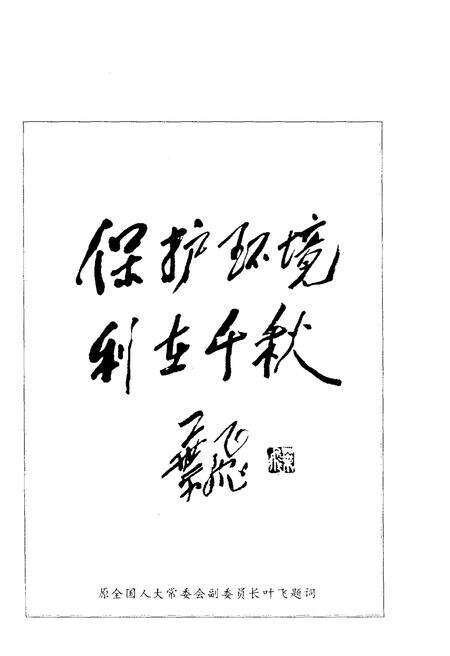 保护环境
利在千秋
葉飛
原全国人大常委会副委员长叶飞题词